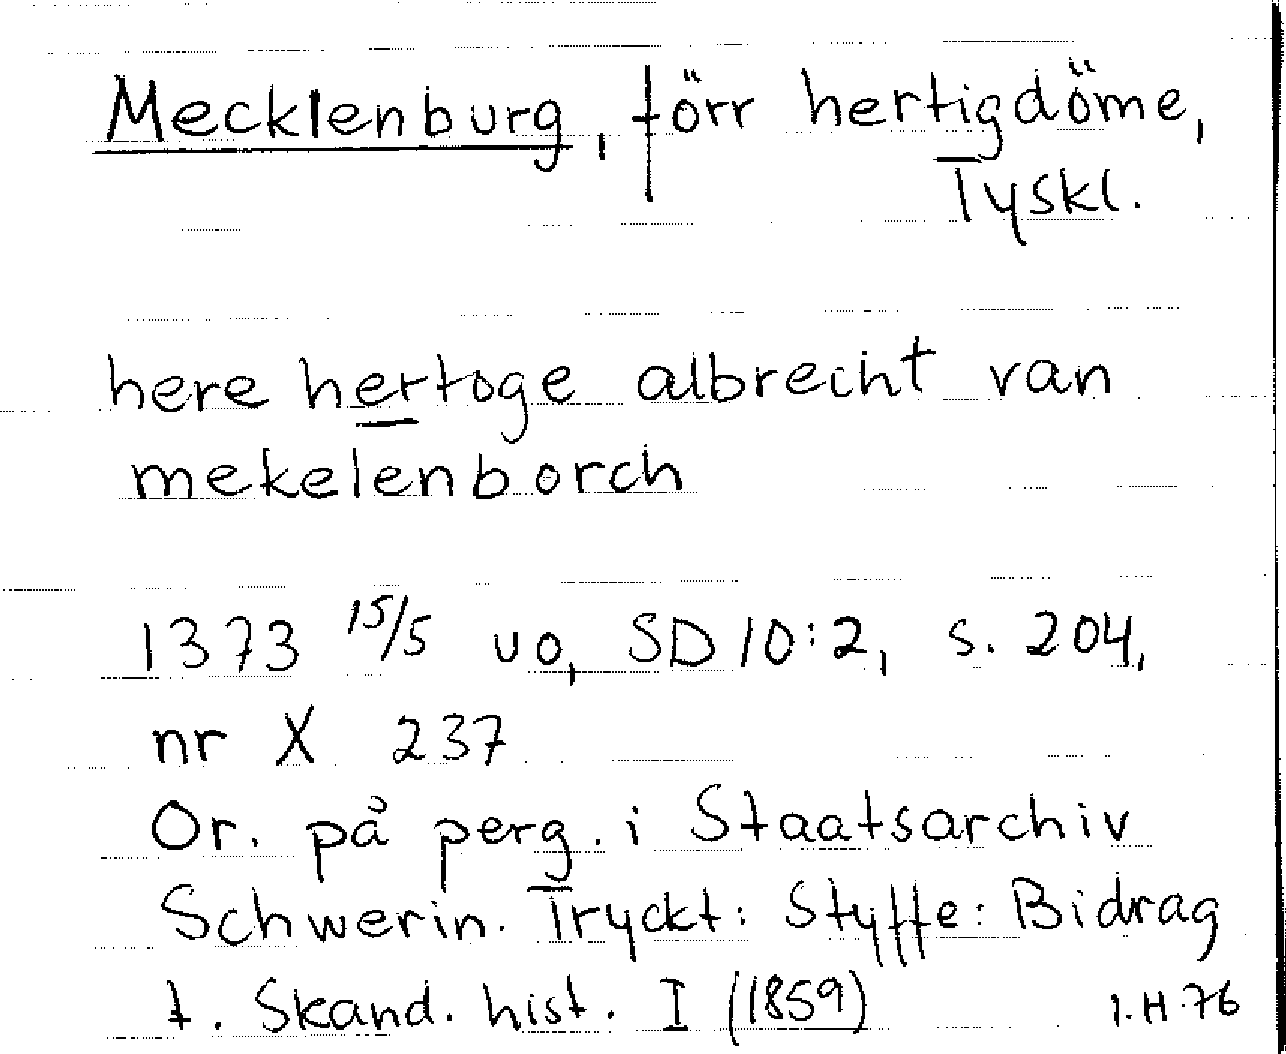 Mecklenburg, förr hertigdöme,
Tyskl.
here hertoge albrecht van
mekelenborch
1373 15/5 uo, SD 10:2, s. 204,
nr X 237
Or. på perg. i Staatsarchiv
Schwerin. Tryckt: Styffe: Bidrag
t. Skand. hist. I (1859)
I.H.76